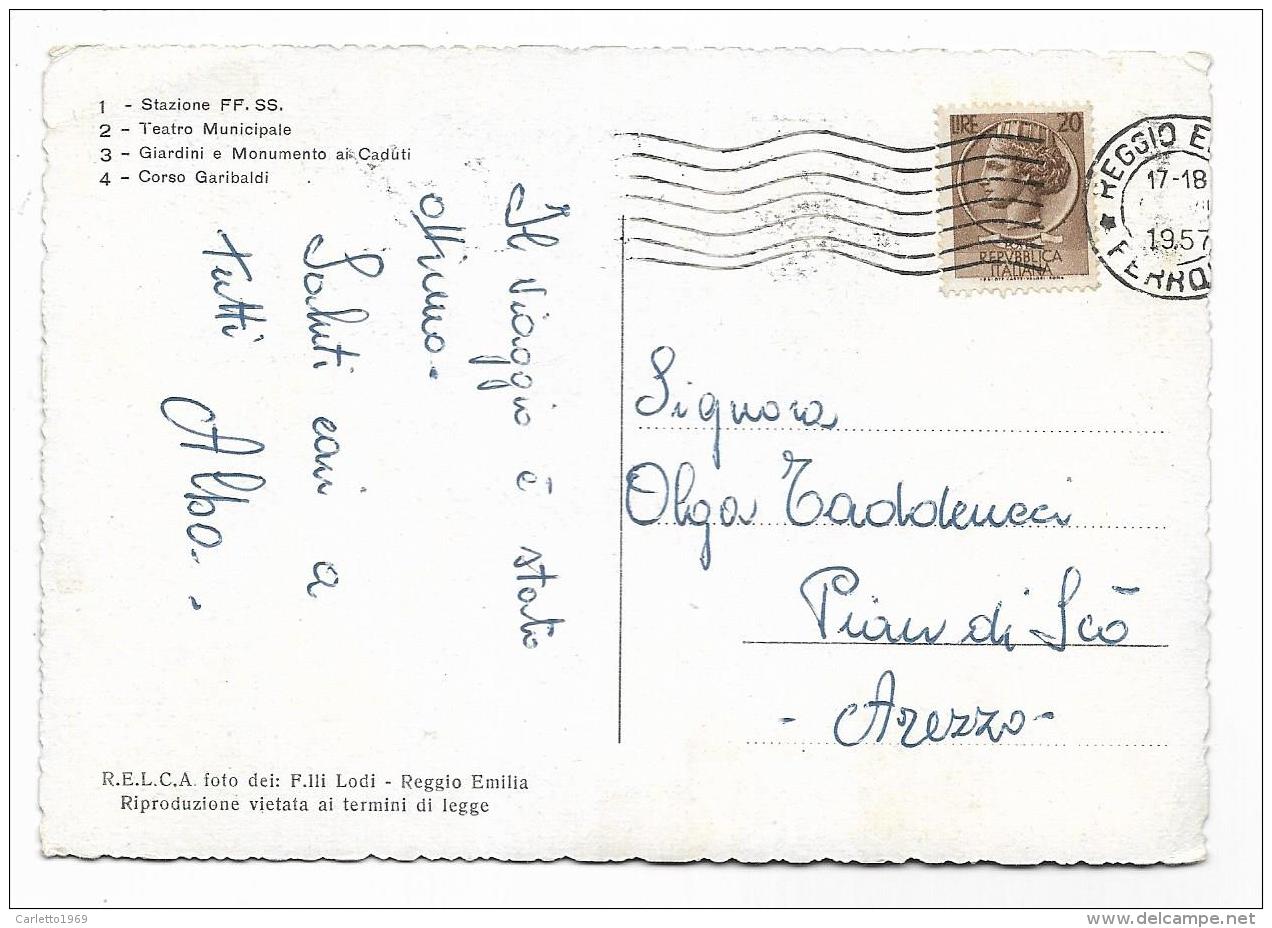 1 - Stazione FF. SS.
2 - Teatro Municipale
3 - Giardini e Monumento ai Caduti
4 - Corso Garibaldi
Il viaggio è stato
ottimo.
Saluti cari a
tutti
Albo.
LIRE 20
REPVBBLICA
ITALIANA
REGGIO E
17-18
1957
FERRO
Signora
Olga Taddeucci
Pian di Scò
- Arezzo -
R.E.L.C.A. foto dei: F.lli Lodi - Reggio Emilia
Riproduzione vietata ai termini di legge
Carletto1969
www.delcampe.net